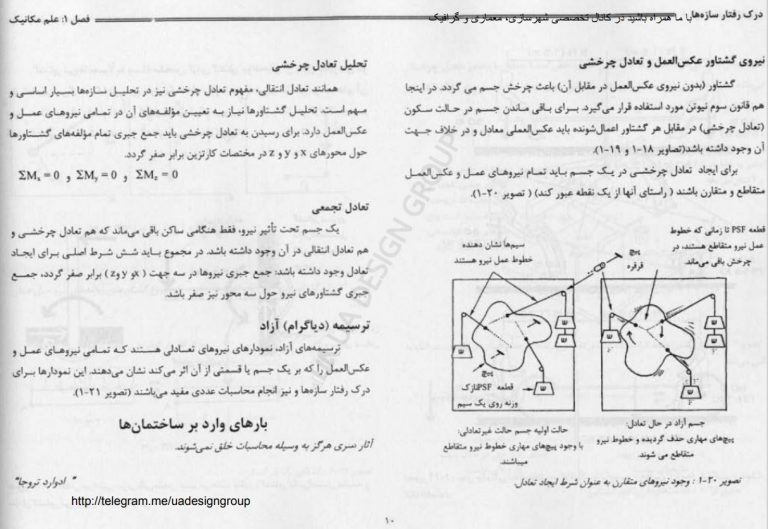 درک رفتار سازه‌ها
با ما همراه باشید در کانال تخصصی شهرسازی، معماری و گرافیک
فصل 1: علم مکانیک
نیروی گشتاور عکس‌العمل و تعادل چرخشی
گشتاور (بدون نیروی عکس‌العمل در مقابل آن) باعث چرخش جسم می گردد. در اینجا
هم قانون سوم نیوتن مورد استفاده قرار می‌گیرد. برای باقی ماندن جسم در حالت سکون
(تعادل چرخشی) در مقابل هر گشتاور اعمال‌شونده باید عکس‌العملی معادل و در خلاف جهت
آن وجود داشته باشد(تصاویر ۱۸-۱ و ۱۹-۱).
برای ایجاد تعادل چرخشی در یک جسم باید تمام نیروهای عمل و عکس‌العمل
متقاطع و متقارن باشند ( راستای آنها از یک نقطه عبور کند) ( تصویر ۲۰-۱).
قطعه PSF تا زمانی که خطوط
عمل نیرو متقاطع هستند، در
چرخش باقی می‌ماند.
سیم‌ها نشان دهنده
خطوط عمل نیرو هستند
پیچ
قرقره
W
W
W
W
W
W
W
W
پیچ
قطعه PSFنازک
ورنه روی یک سیم
جسم آزاد در حال تعادل:
پیچ‌های مهاری حذف گردیده و خطوط نیرو
متقاطع می شوند.
حالت اولیه جسم حالت غیرتعادلی:
با وجود پیچ‌های مهاری خطوط نیرو متقاطع
میباشند.
تصویر ۲۰-۱ : وجود نیروهای متقارن به عنوان شرط ایجاد تعادل.
تحلیل تعادل چرخشی
همانند تعادل انتقالی، مفهوم تعادل چرخشی نیز در تحلیل سازه‌ها بسیار اساسی و
مهم است. تحلیل گشتاورها نیاز به تعیین مؤلفه‌های آن در تمامی نیروهای عمل و
عکس‌العمل دارد. برای رسیدن به تعادل چرخشی باید جمع جبری تمام مؤلفه‌های گشتاورها
حول محورهای x و y و z در مختصات کارتزین برابر صفر گردد.
ΣMx = 0 و ΣMy = 0 و ΣMz = 0
تعادل تجمعی
یک جسم تحت تأثیر نیرو، فقط هنگامی ساکن باقی می‌ماند که هم تعادل چرخشی و
هم تعادل انتقالی در آن وجود داشته باشد. در مجموع باید شش شرط اصلی برای ایجاد
تعادل وجود داشته باشد: جمع جبری نیروها در سه جهت ( x و y و z) برابر صفر گردد، جمع
جبری گشتاورهای نیرو حول سه محور نیز صفر باشد.
ترسیمه (دیاگرام) آزاد
ترسیمه‌های آزاد، نمودارهای نیروهای تعادلی هستند که تمامی نیروهای عمل و
عکس‌العمل را که بر یک جسم یا قسمتی از آن اثر می‌کند نشان می‌دهند. این نمودارها برای
درک رفتار سازه‌ها و نیز انجام محاسبات عددی مفید می‌باشند (تصویر ۲۱-۱).
بارهای وارد بر ساختمان‌ها
آثار هنری هرگز به وسیله محاسبات خلق نمی‌شوند.
" ادوارد تروجا"
http://telegram.me/uadesigngroup
۱۰
UA DESIGN GROUP